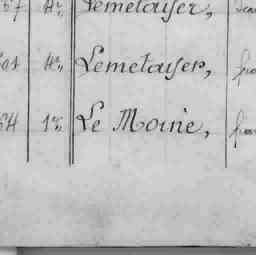 57 4º Lemetayer,
4º Lemetayer,
54 1º Le Moine,